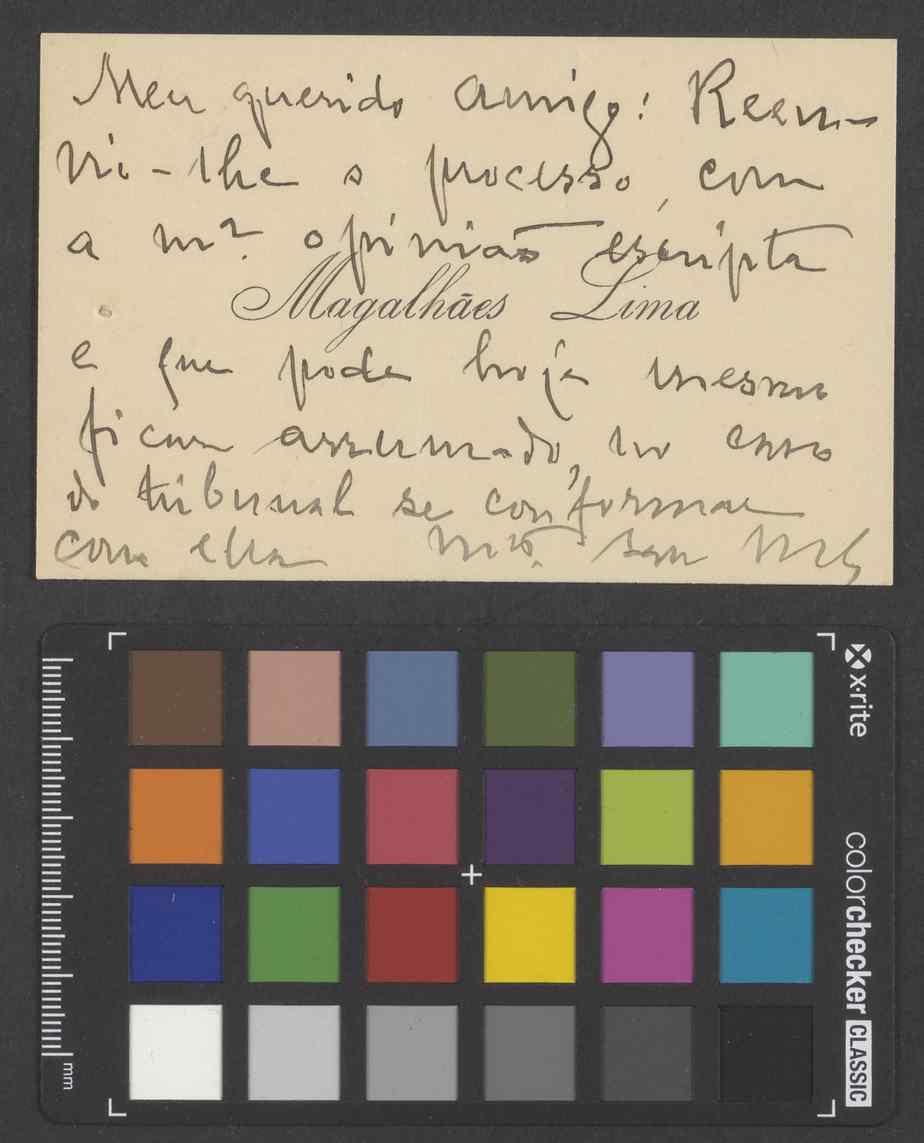 Meu querido amigo: Reen-
vi-lhe o processo, com
a m.ª opinião escripta
Magalhães Lima
e que pode hoje mesmo
ficar arrumado, no caso
do tribunal se conformar
com ella M.to seu
mm
x·rite
colorchecker CLASSIC